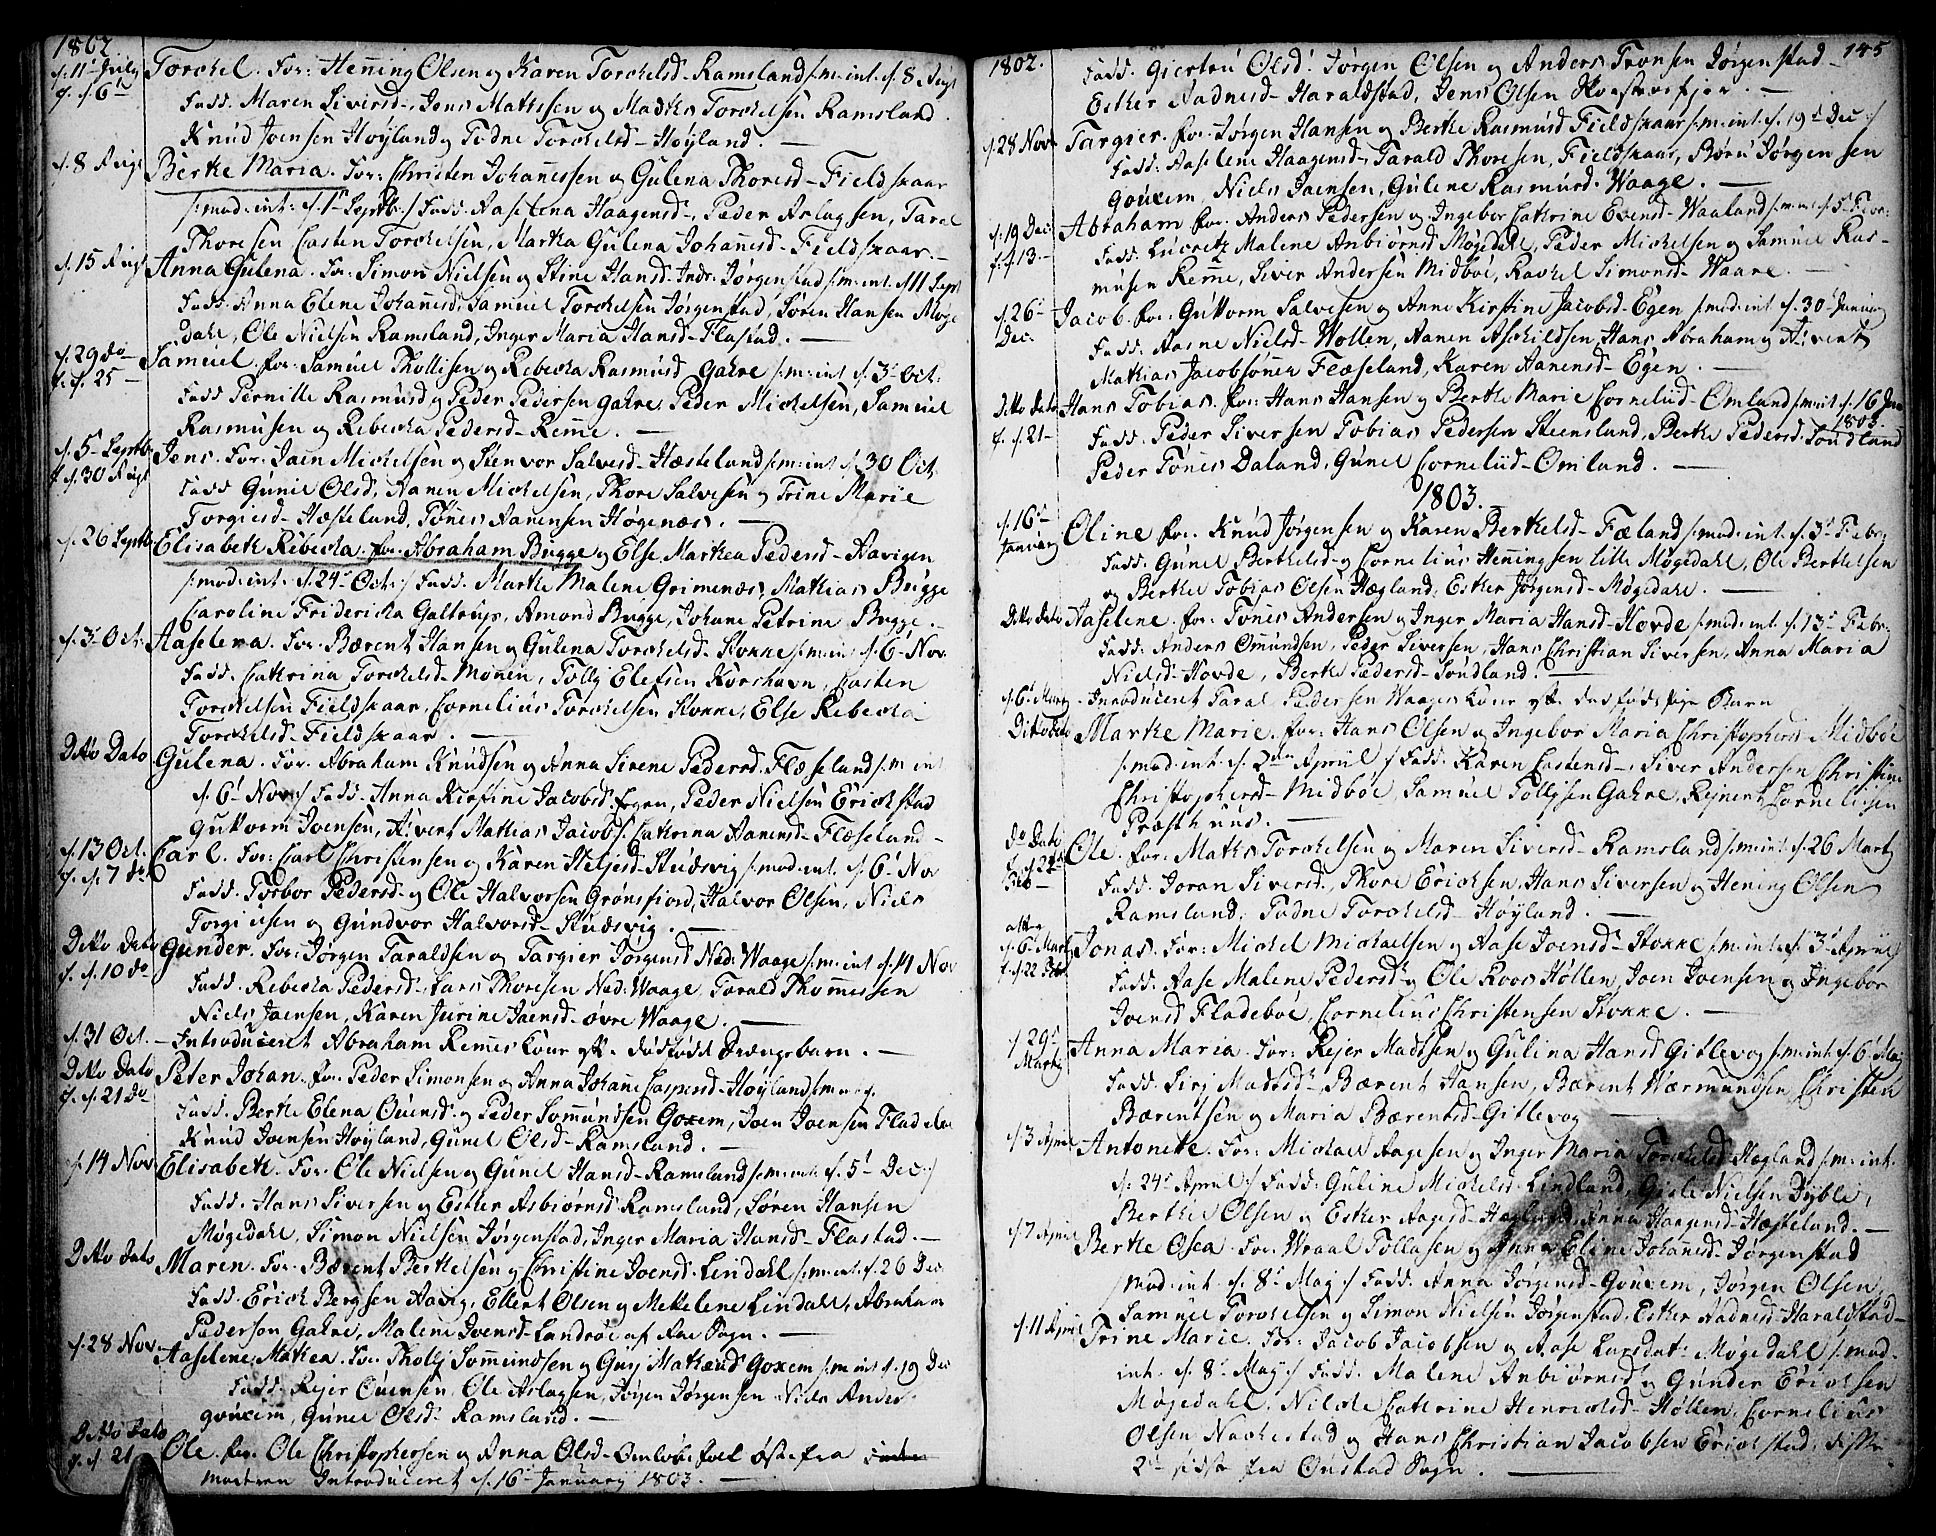 1802.
d. 11 July Torckel. For: Henning Olsen og Karen Torckelsd. Ramsland /:m: int. d. 8 Augt
f. d. 6te Fadd. Maren Siversd., Jens Mathisen og Mathis Torckelsen Ramsland
Knud Joensen Høyland og Todne Torckelsd. Høyland.
d. 8 Augt Berte Maria. For: Christen Johannessen og Gulena Thoresd. Fieldskaar
/:mod: int: d. 1 Septb:/ Fadd. Aaselena Haagensd., Peder Aslagsen, Taral
Thoresen Casten Torckelsen, Martha Gulena Johannesd. Fieldskaar.
d. 15 Augt Anna Gulena. For: Simon Nielsen og Stine Hansd. Indr: Jørgenstad /:m: int. d. 11 Sept
Fadd. Anna Elene Johannesd., Samuel Torckelsen Jørgenstad, Søren Hansen Møge
dahl, Ole Nielsen Ramsland, Inger Maria Hansd. Flastad.
d. 29 do Samuel. for: Samuel Thollisen og Rebecka Rasmusd Gahre /:m: int d. 3 Oct:
f. d. 25 Fadd Pernille Rasmusd og Peder Pedersen Gahre Peder Mickelsen, Samuel
Rasmusen og Rebecka Pedersd. Remme.
d. 5 Septb Jens. For: Jaen Mickelsen og Stenvor Salvesd. Hæsteland /:m: int d. 30 Oct:
f. d. 30 Augt Fadd Gunil Olsd, Aanen Mickelsen, Thore Salvesen og Trine Marie
Torgiesd. Hæsteland, Tønes Aanensen Høgenæs.
d. 26 Septb Elisabeth Rebecka. for. Abraham Bugge og Else Marthea Pedersd. Aavigen
/:mod: int. d. 24 Oct:/ Fadd. Marthe Malene Grimenæs, Mathias Bugge
Caroline Fridericka Galtrup, Amond Bugge, Johane Petrine Bugge.
d. 3 Oct: Aaselena. For. Bærent Hansen og Gulena Torckelsd. Stokke /:m: int d. 6 Nov.
Fadd. Cathrina Torckelsd. Monen, Tollj Elefsen Korshavn, Casten
Torckelsen Fieldskaar, Cornelius Torckelsen Stokke, Else Rebecka
Torckelsd. Fieldskaar.
Ditto Dato Gulena. For. Abraham Knudsen og Anna Sirene Pedersd. Flæseland /:m int
d. 6 Nov:/ Fadd. Anna Kirstine Jacobsd. Egen, Peder Nielsen Erickstad
Guttorm Joensen, Aivert Mathias Jacobs. Cathrina Aanensd. Flæseland
d. 13 Oct. Carl. For: Carl Christensen og Karen Steljesd. Studsvig /:mod int. d. 6 Nov
f. d. 7 do Fadd. Torbor Pedersd. og Ole Halvorsen Grønsfiord, Halvor Olsen, Niels
Torgiesen og Gundvor Halvorsd. Studsvig.
Ditto Dato Gunder. For. Jørgen Taraldsen og Targier Jørgensd Ned: Waage /:m: int d. 11 Nov
f. d. 10 do Fadd. Rebecka Pedersd. Lars Thoresen Ned: Waage, Torald Thommessen
Niels Jaensen, Karen Jurine Jaensd. øvre Waage.
d. 31 Oct. Introduceret Abraham Remmes kone eft. dødfødt Drængebarn.
Ditto Dato Peter Johan. for. Peder Simonsen og Anna Johanne Caspersd. Høyland
f. d. 21 do Fadd. Berte Elena Ouensd. og Peder Sommundsen Goxem, Joen Joensen Fladeboe
Knud Joensen Høyland, Gunel Olsd. Ramsland.
d. 14 Nov Elisabeth. For. Ole Nielsen og Gunel Hansd. Ramsland /:m: int. d. 5 Dec:/
Fadd. Hans Siversen og Esther Asbiørnsd. Ramsland, Søren Hansen
Møgedahl, Simon Nielsen Jørgenstad, Inger Maria Hansd. Flastad.
Ditto Dato Maren. For. Bærent Berthelsen og Christine Joensd. Lindahl /:m: int. d. 26 Dec
Fadd. Erich Bergsen Aavig, Ellert Olsen og Mettelene Lindahl, Abraham
Pedersen Gahre, Malene Joensd. Landøe af Aae Sogn.
d. 28 Nov. Aaselene Mathea. For. Thollj Sommundsen og Gurj Mathæusd Goxem /:m int d. 19 Dec
Fadd. Rejer Ouensen, Ole Aslagsen, Jørgen Jørgensen, Niels Anders
goxem, Gunel Olsd. Ramsland.
Ditto Dato Ole. for. Ole Christophersen og Anna Olsd. Omløbs folk øst fra
f. d. 21 modren Introduceret d. 16 January 1803.
1802. 145
Fadd. Giertru Olsd. Jørgen Olsen og Anders Tronsen Jørgenstad
Esther Aadnesd. Haraldstad, Jens Olsen
d. 28 Nov. Targier. for. Jørgen Hansen og Berte Rasmusd Fieldskaar /:m: int. d. 19 Dec:/
Fadd. Aaselene Haagensd. Tarald Thoresen, Fieldskaar, Børu Jørgensen
Gouxem, Niels Jaensen, Gulene Rasmusd. Waage.
d. 19 Dec: Abraham for. Anders Pedersen og Ingebor Cathrine Evensd. Waaland /:m: int d. 5 Febr:
f. d. 13. Fadd. Lucretz Malene Anbiørnsd Møgedahl, Peder Mickelsen og Samuel Ras-
musen Remme, Siver Andersen Midbøe, Rachel Simonsd. Waare.
d. 26 Dec. Jacob. for. Guttorm Salvesen og Anne Kirstine Jacobsd. Egen /:mod: int d. 30 Januarj
Fadd. Aasne Nielsd. Wollen, Aanen Aschildsen, Hans Abraham og Aivert
Mathias Jacobsønner Flæseland, Karen Aanensd. Egen.
Ditto Dato Hans Tobias. for. Hans Hansen og Berthe Marie Cornelisd. Omland /:m: int d. 16 Jan
f. d. 21 1803.
Fadd. Peder Siversen Tobias Pedersen Steensland, Berthe Pedersd. Søndland
Peder Tønes Daland, Gunel Cornelisd. Omland.
1803.
d. 16 January Oline for. Knud Jørgensen og Karen Berthelsd. Fæland /:mod: int. d. 3 Febr.
Fadd. Gunel Berthelsd. og Cornelius Henningsen lille Møgedahl, Ole Berthelsen
og Berthe Tobias Olsen Hægland, Esther Jørgensd. Møgedahl.
Ditto Dato Aaselene. for. Tønes Andersen og Inger Maria Hansd. Hovde /:mod: int. d. 13 Febr:
Fadd. Anders Omundsen, Peder Siversen, Hans Christian Siversen, Anna Maria
Nielsd. Hovde, Berthe Pedersd. Søndland.
d. 6 Martj. Introduceret Taral Pedersen Waages kone eft. dødfødt Pige Barn
Dito Dato Marthe Marie. for. Hans Olsen og Ingebor Maria Christophersd Midbøe
/:mod: int. d. 2den April / Fadd. Karen Castensd., Siver Andersen Christine
Christophersd. Midbøe, Samuel Tolljsen Gahre, Rejnert Cornelisen
Præsthuus.
do Dato Ole. for: Mathis Torckelsen og Maren Siversd. Ramsland /:m: int d. 26 Martj
f. d. 22 Feb Fadd. Joran Siversd., Thore Ericksen, Hans Siversen og Hening Olsen
Ramsland, Todne Torckelsd. Høyland.
d. 6 Mart Jonas. For: Michel Michaelsen og Aase Joensd. Stokke /:m: int. d. 3 April
f. d. 22 Feb. Fadd. Aase Malene Pedersd. og Ole Roos Hollen, Joen Joensen og Ingebor
Joensd Fladebøe, Cornelius Christensen Stokke.
d. 29 Martj Anna Maria. For: Rejer Madtsen og Gulina Hansd. Gitlevog /:m: int. d. 6 Maj
Fadd. Sirj Madtsd., Bærent Hansen, Bærent Værmundsen, Christen
Bærentsen og Maria Bærentsd. Gitlevog
d. 3 April Antonette. For. Michael Aagesen og Inger Maria Torckelsd Hægland /:m: int.
d. 24 April / Fadd. Guline Michelsd. Lindland, Gisle Nielsen Dyble,
Berthe Olsen og Esther Aagesd. Hægland, Anna Haagensd. Hæsteland.
d. 7 April Berthe Osea. For. Wraal Tollasen og Anna Eline Johannesd. Jørgenstad
/mod: int. d. 8 Maj:/ Fadd. Anna Jørgensd. Gouxem, Jørgen Olsen,
Samuel Torckelsen og Simon Nielsen Jørgenstad, Esther Aadnesd. Haraldstad
d. 11 April Trine Marie. For. Jacob Jacobsen og Aase Larsdat: Møgedahl /:mod.
int. d. 8 Maj:/ Fadd. Malene Anbiørnsd og Gunder Ericksen
Møgedahl, Nilde Cathrine Henricksd. Hollen, Cornelius
Olsen Nachestad og Hans Christian Jacobsen Erickstad, disse
2de sidste fra Ounstad Sogn.